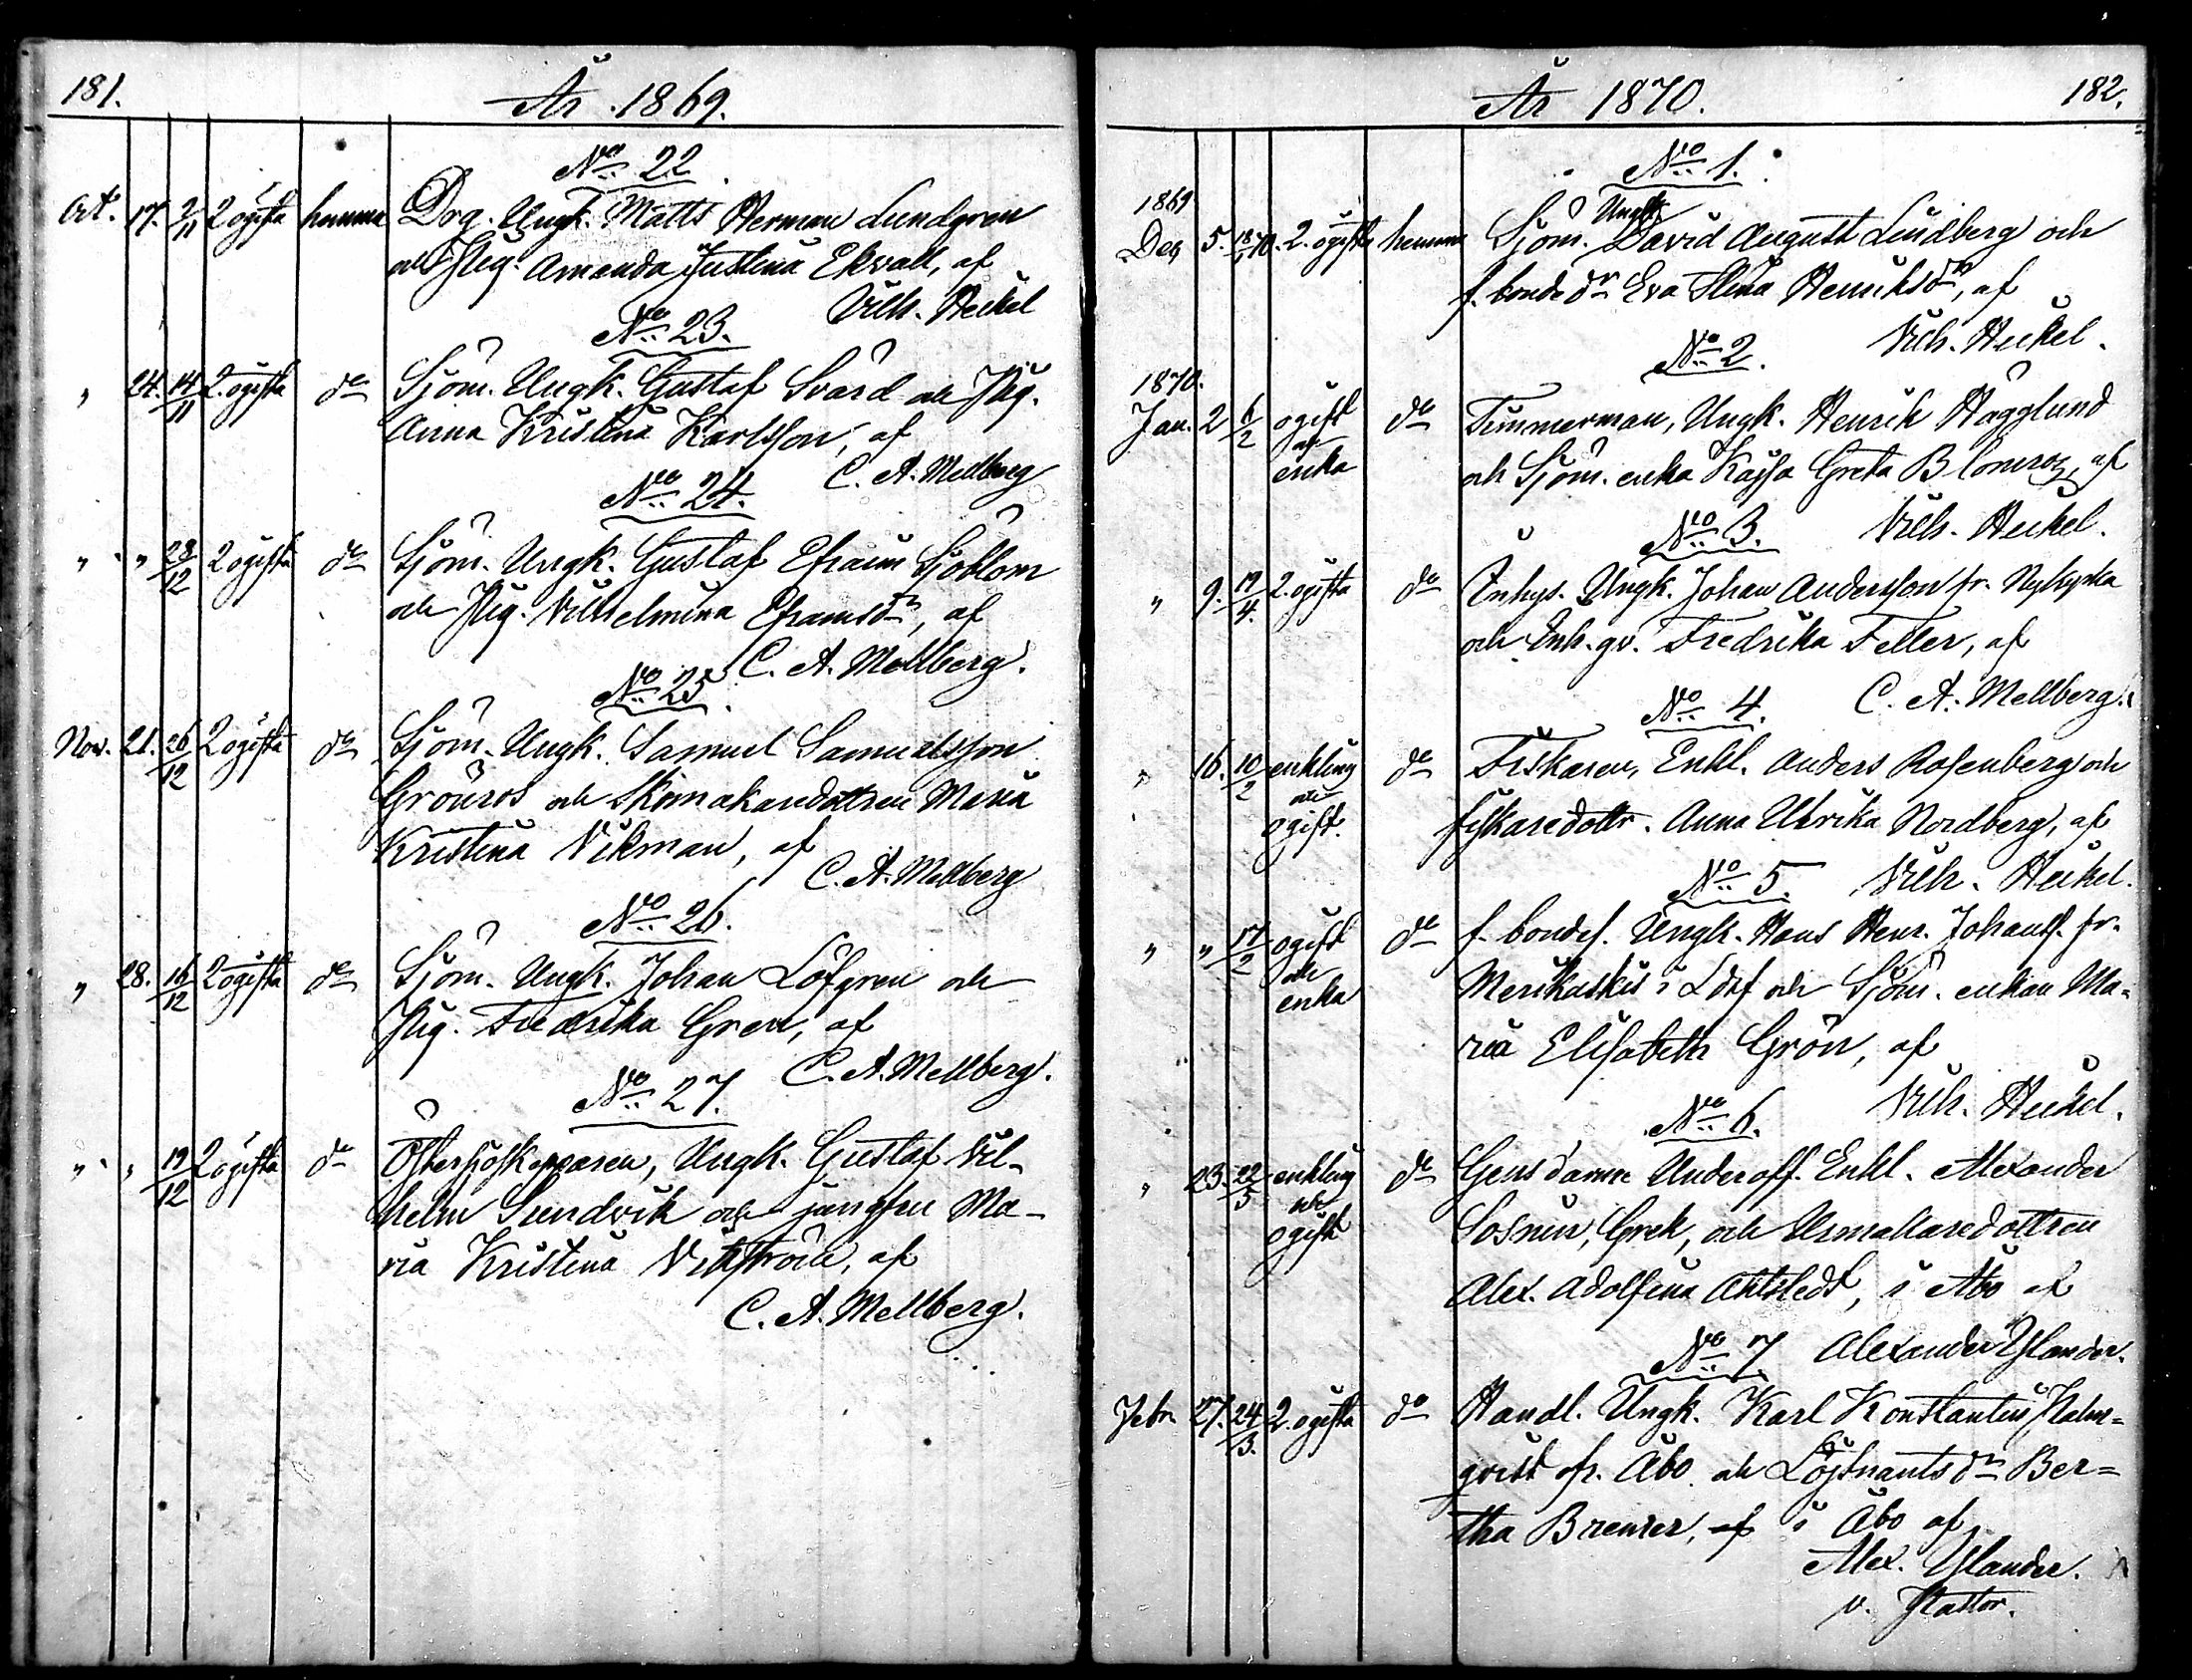 181.
År 1869.
No 22
Oct. 17. 2/11 2 ogifta hemma Drg. Ungk. Matts Herman Lundgren
och Pig. Amanda Justina Ekvall, af
Vilh. Heikel
No 23.
" 24. 14/11 2. ogifta do Sjöm. Ungk. Gustaf Svärd och Pig.
Anna Kristina Karlsson, af
C. A. Mellberg
No 24.
" " 28/12 2 ogifta do Sjöm. Ungk. Gustaf Efraim Sjöblom
och Pig. Vilhelmina Eframsdr, af
C. A. Mellberg.
No 25.
Nov. 21. 26/12 2 ogifta do Sjöm. Ungk. Samuel Samuelsson
Grönros och Skomakaredottren Maria
Kristina Vikman, af
C. A. Mellberg
No 26.
" 28. 16/12 2 ogifta do Sjöm. Ungk. Johan Löfgren och
Pig. Fredrika Gren, af
C. A. Mellberg.
No 27.
" " 19/12 2 ogifta do Östersjöskepparen, Ungk. Gustaf Vil-
helm Sundvik och jungfru Ma-
ria Kristina Vikström, af
C. A. Mellberg.
År 1870.
182.
No 1.
1869
Dec. 5. 18/1 70. 2. ogifta hemma Sjöm. Ungk. David August Lindberg och
f. bonde dr Eva Stina Henriksdr, af
Vilh. Heikel.
No 2.
1870.
Jan. 2 6/2 ogift och enka do Timmerman, Ungk. Henrik Hägglund
och Sjöm. enka Kajsa Greta Blomros, af
Vilh. Heikel.
No 3.
" 9. 19/4. 2. ogifta do Inhys. Ungk. Johan Andersson fr. Nykyrka
och Inh. gv. Fredrika Feller, af
C. A. Mellberg.
No 4.
" 16. 10/2 enkling och ogift. do Fiskaren, Enkl. Anders Rosenberg och
fiskaredottr. Anna Ulrika Nordberg, af
Vilh. Heikel.
No 5.
" " 17/2 ogift och enka do f. bondes. Ungk. Hans Henr. Johanss. fr.
Merikaskis i Ldaf och Sjöm. enkan Ma=
ria Elisabeth Grön, af
Vilh. Heikel.
No 6.
" 23. 22/5 enkling och ogift do Gensdarme Underoff. Enkl. Alexander
Sosnin, Grek, och Urmakaredottren
Alex. Adolfina Ahlstedt, i Åbo af
Alexander Ylander.
No 7
Febr. 27. 24/3. 2. ogifta do Handl. Ungk. Karl Konstantin Palm=
qvist fr. Åbo och Löjtnants dr Ber=
tha Brenner, af i Åbo af
Alex. Ylander.
v. Pastor.